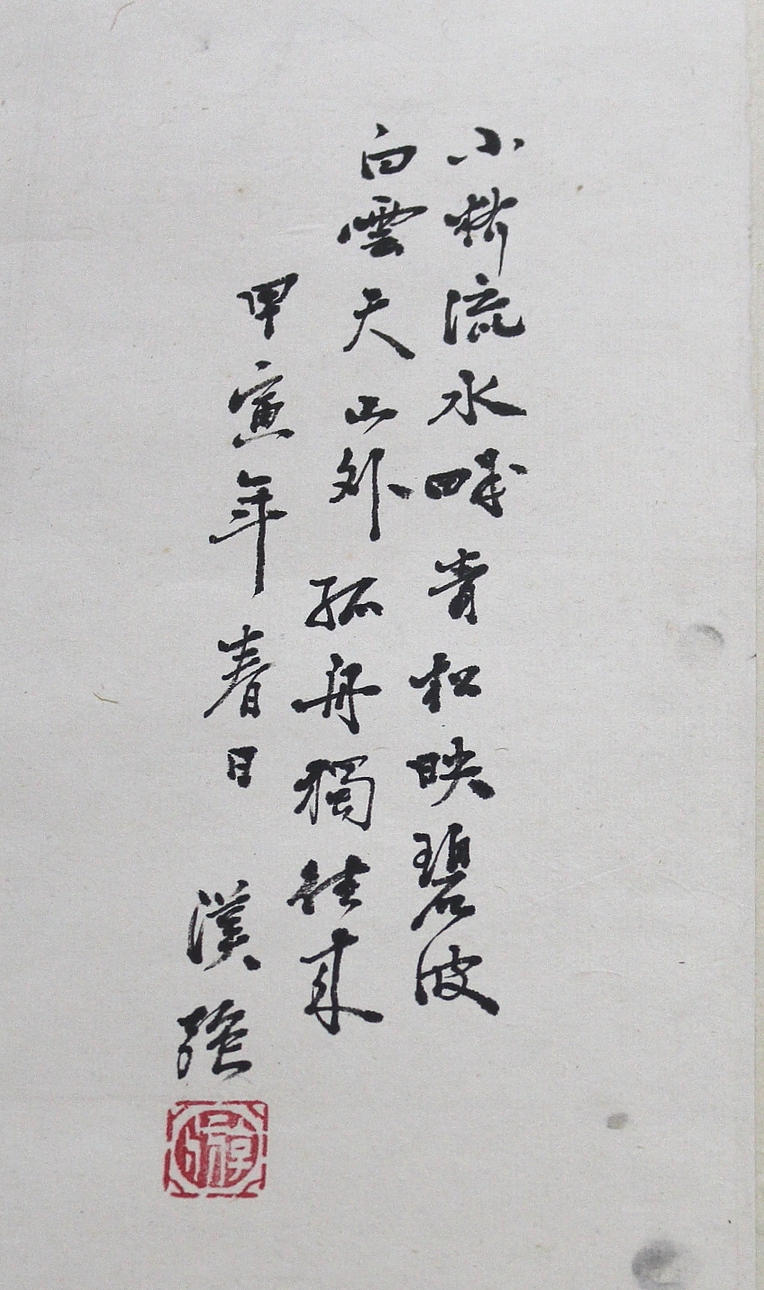 小橋流水畔青松映碧波
白雲天山外孤舟獨往來
甲寅年春日 漢強